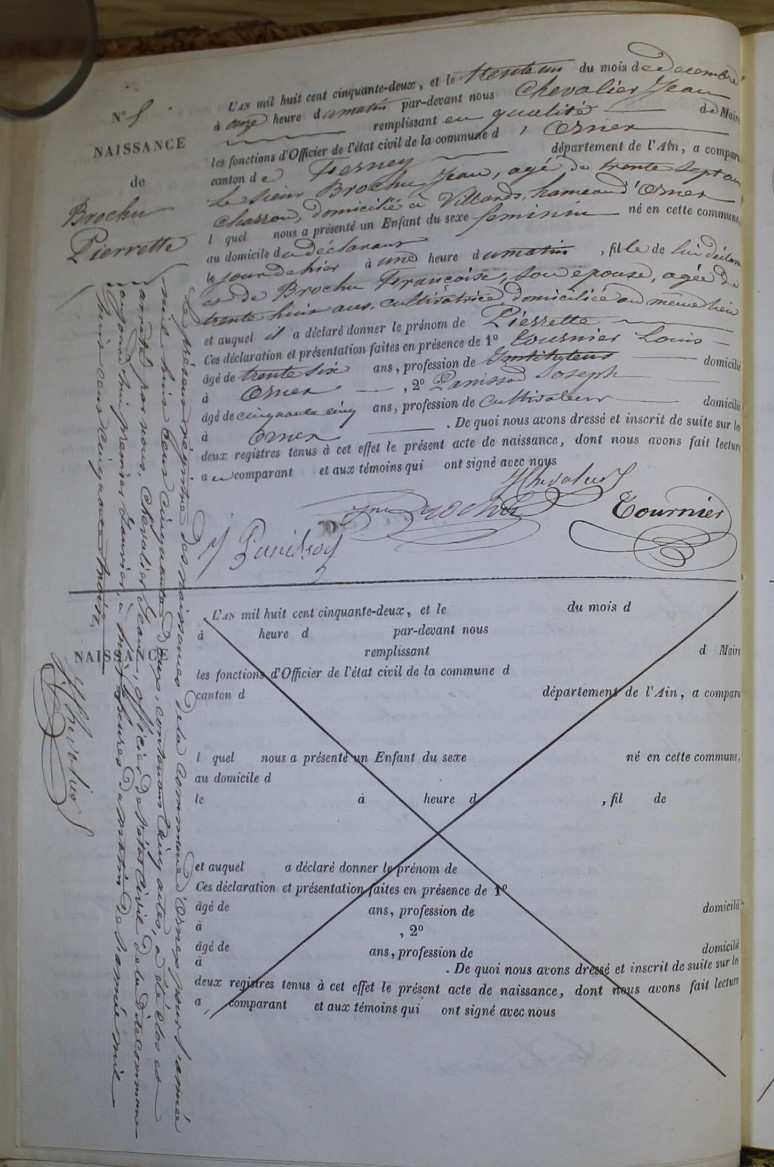 N° 5
NAISSANCE
de
Brochu
Pierrette
L'AN mil huit cent cinquante-deux, et le trente un du mois de decembre
à onze heure du matin par-devant nous Chevalier Jean
remplissant en qualité de Maire
les fonctions d'Officier de l'état civil de la commune d' Ornex
canton de Ferney département de l'Ain, a comparu
Le sieur Brochu Jean, agé de trente sept ans
domicilié à Villards, hameau d'Ornex
l quel nous a présenté un Enfant du sexe feminin né en cette commune,
au domicile du déclarant
le jour d'hier à une heure du matin, fille de lui déclarant
et de Brochu Françoise, son épouse, agée de
trente huit ans, cultivatrice, domiciliée au même lieu
et auquel il a déclaré donner le prénom de Pierrette
Ces déclaration et présentation faites en présence de 1° Tournier Louis
âgé de trente six ans, profession de Instituteur domicilié
à Ornex, 2° Panissod Joseph
âgé de cinquante cinq ans, profession de Cultivateur domicilié
à Ornex. De quoi nous avons dressé et inscrit de suite sur les
deux registres tenus à cet effet le présent acte de naissance, dont nous avons fait lecture
au comparant et aux témoins qui ont signé avec nous
Tournier
Le présent régistre des naissances de la commune d'Ornex pour l'année
mil huit cent cinquante deux contenant cinq actes, a été clos et
arrêté par nous, Chevalier Jean, officier de l'état civil de la dite commune
aujourd'hui premier Janvier, à huit heures du matin de l'année mil
huit cent cinquante trois.
L'AN mil huit cent cinquante-deux, et le du mois d
à heure d par-devant nous
NAISSANCE remplissant d Maire
les fonctions d'Officier de l'état civil de la commune d
canton d département de l'Ain, a comparu
l quel nous a présenté un Enfant du sexe né en cette commune,
au domicile d
le à heure d , fil de
et auquel a déclaré donner le prénom de
Ces déclaration et présentation faites en présence de 1°
âgé de ans, profession de domicilié
à , 2°
âgé de ans, profession de domicilié
à . De quoi nous avons dressé et inscrit de suite sur les
deux registres tenus à cet effet le présent acte de naissance, dont nous avons fait lecture
a comparant et aux témoins qui ont signé avec nous